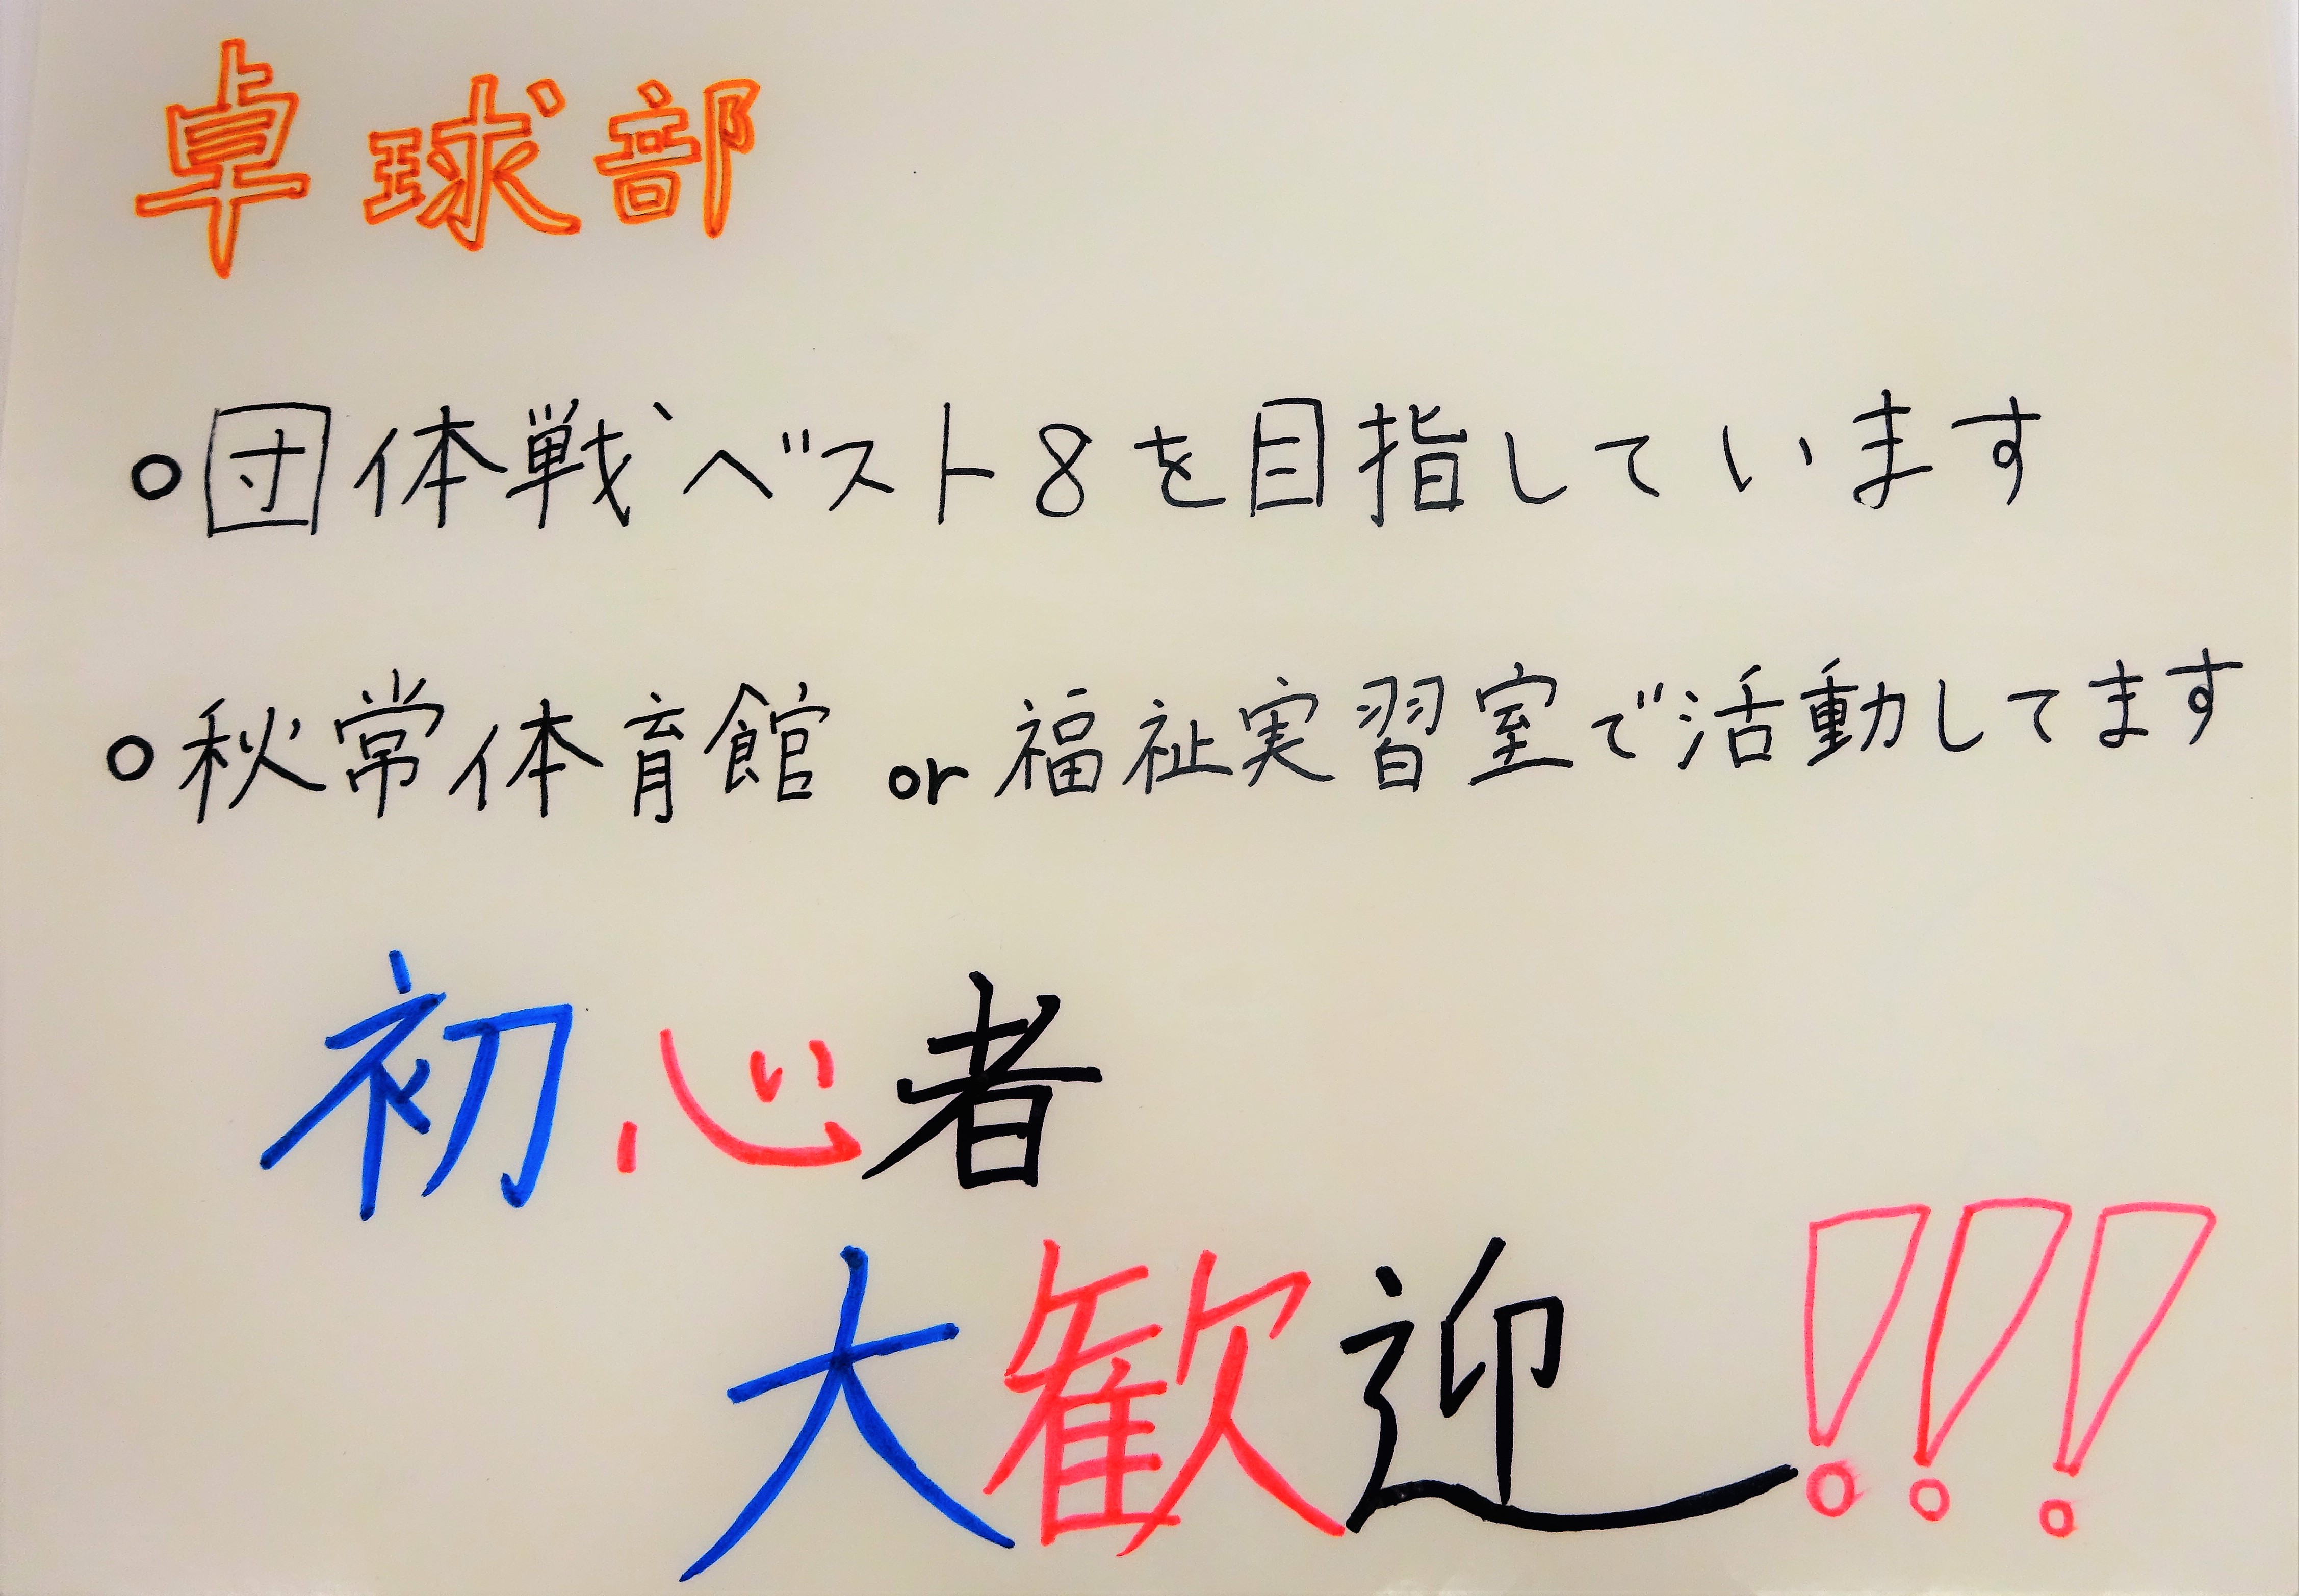 卓球部
○団体戦ベスト8を目指しています
○秋常体育館 or 福祉実習室で活動してます
初心者
大歓迎!!!